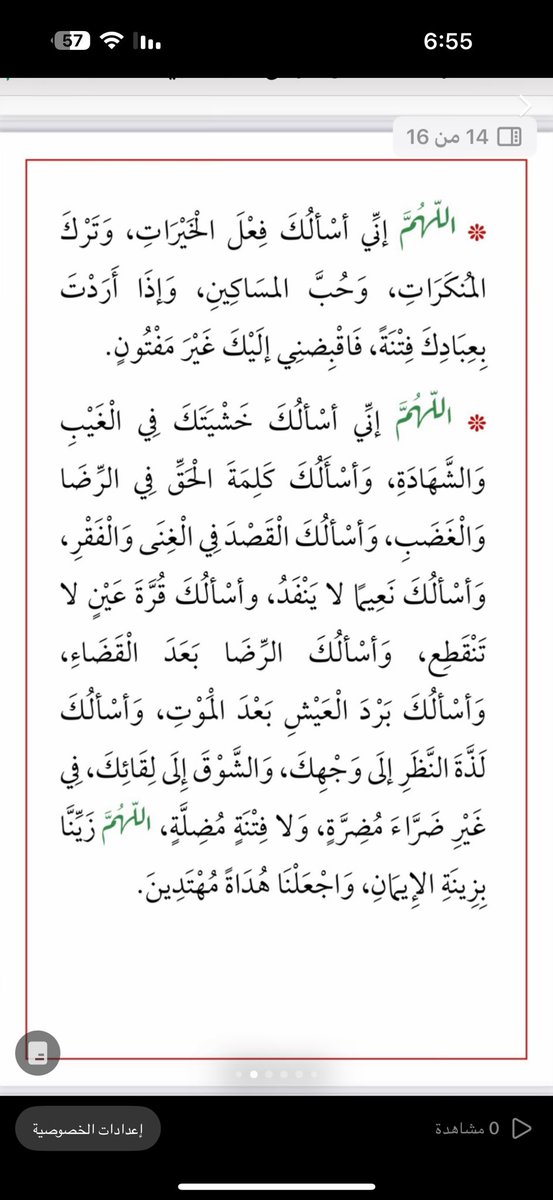 6:55
57
14 من 16
* اللَّهُمَّ إنِّي أسْألُكَ فِعْلَ الْخَيْرَاتِ، وَتَرْكَ
المُنكَرَاتِ، وَحُبَّ المسَاكِينِ، وَإذَا أَرَدْتَ
بِعِبَادِكَ فِتْنَةً، فَاقْبِضنِي إلَيْكَ غَيْرَ مَفْتُونٍ.
* اللَّهُمَّ إنِّي أسْألُكَ خَشْيَتَكَ فِي الْغَيْبِ
وَالشَّهَادَةِ، وَأسْأَلُكَ كَلِمَةَ الْحَقِّ فِي الرِّضَا
وَالْغَضَبِ، وَأسْألُكَ الْقَصْدَ فِي الْغِنَى وَالْفَقْرِ،
وَأسْألُكَ نَعِيمًا لا يَنْفَدُ، وأسْألُكَ قُرَّةَ عَيْنٍ لا
تَنْقَطِع، وَأسْألُكَ الرِّضَا بَعَدَ الْقَضَاءِ،
وَأسْألُكَ بَرْدَ الْعَيْشِ بَعْدَ الْمَوْتِ، وَأسْألُكَ
لَذَّةَ النَّظَرِ إلَى وَجْهِكَ، وَالشَّوْقَ إلَى لِقَائِكَ، فِي
غَيْرِ ضَرَّاءَ مُضِرَّةٍ، وَلا فِتْنَةٍ مُضِلَّةٍ، اللَّهُمَّ زَيِّنَّا
بِزِينَةِ الإيمَانِ، وَاجْعَلْنَا هُدَاةً مُهْتَدِينَ.
0 مشاهدة
إعدادات الخصوصية